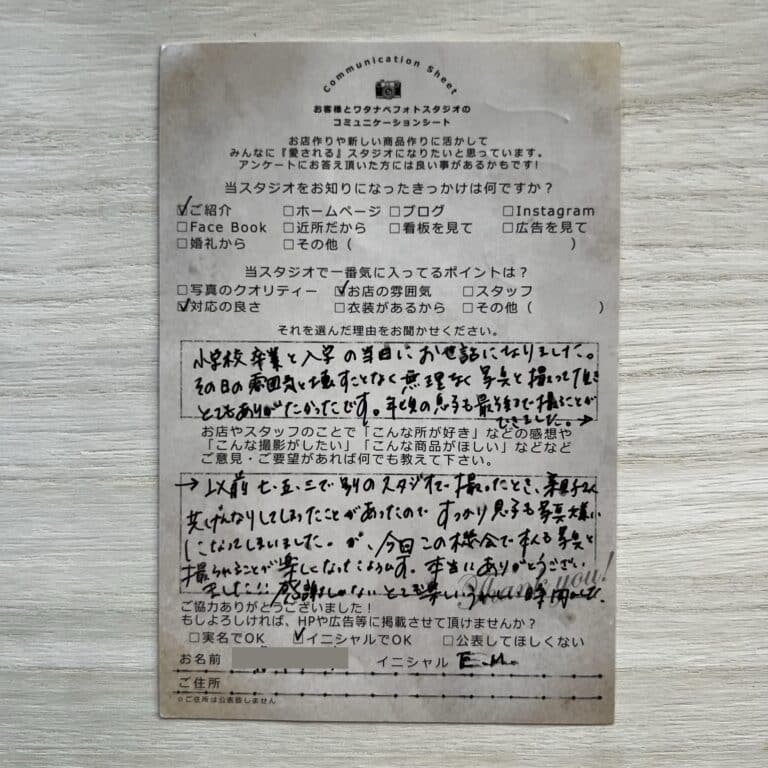 Communication Sheet
お客様とワタナベフォトスタジオの
コミュニケーションシート
お店作りや新しい商品作りに活かして
みんなに『愛される』スタジオになりたいと思っています。
アンケートにお答え頂いた方には良い事があるかもです!
当スタジオをお知りになったきっかけは何ですか?
☑ご紹介 □ホームページ □ブログ □Instagram
□Face Book □近所だから □看板を見て □広告を見て
□婚礼から □その他( )
当スタジオで一番気に入ってるポイントは?
□写真のクオリティー ☑お店の雰囲気 □スタッフ
☑対応の良さ □衣装があるから □その他( )
それを選んだ理由をお聞かせください。
小学校卒業と入学の当日にお世話になりました。
その日の雰囲気を壊すことなく無理なく写真を撮って頂き
とてもありがたかったです。年頃の息子も最後まで撮ることが
できました。→
お店やスタッフのことで「こんな所が好き」などの感想や
「こんな撮影がしたい」「こんな商品がほしい」などなど
ご意見・ご要望があれば何でも教えて下さい。
→以前七・五・三で別のスタジオで撮ったとき、親子
共げんなりしてしまったことがあったので すっかり息子も写真大嫌い
になってしまいました。が、今回この機会で本人も写真を
撮られることが楽しくなったようです。本当にありがとうござい
ました!! 感謝しかない とても楽しい 時間でした。
Thank you!
ご協力ありがとうございました!
もしよろしければ、HPや広告等に掲載させて頂けませんか?
□実名でOK ☑イニシャルでOK □公表してほしくない
お名前 イニシャル E.M.
ご住所
※ご住所は公表致しません